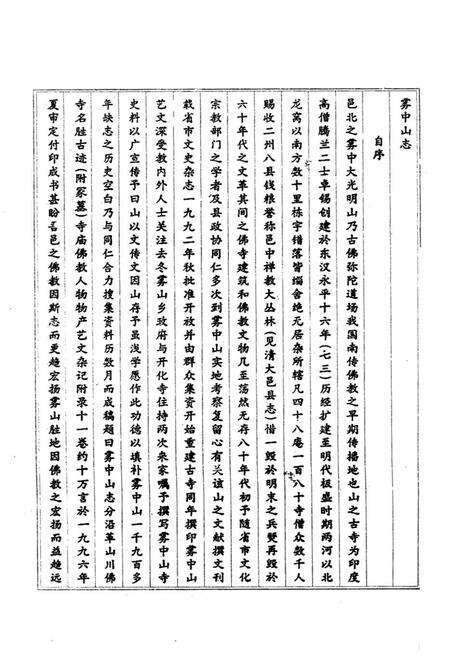 雾中山志
自序
邑北之雾中大光明山乃古佛弥陀道场我国南传佛教之早期传播地也山之古寺为印度
高僧腾兰二士卓锡创建於东汉永平十六年(七三)历经扩建至明代极盛时期两河以北
龙窝以南方数十里栋宇错落皆缁舍绝无居杂所辖凡四十八庵一百八十寺僧众数千人
赐收二州八县钱粮誉称邑中禅教大丛林(见清大邑县志)惜一毁於明末之兵燹再毁於
六十年代之文革其间之佛寺建筑和佛教文物几至荡然无存八十年代初予随省市文化
宗教部门之学者及县政协同仁多次到雾中山实地考察复留心有关该山之文献撰文刊
载省市文史杂志一九九二年秋批准开放并由群众集资开始重建古寺同年撰印雾中山
艺文深受教内外人士关注去冬雾山乡政府与开化寺住持两次来家嘱予撰写雾中山寺
史料以广宣传予曰山以文传文因山存予虽浅学愿作此功德以填补雾中山一千九百多
年缺志之历史空白乃与同仁合力搜集资料历数月而成稿题曰雾中山志分沿革山川佛
寺名胜古迹(附冢墓)寺庙佛教人物物产艺文杂记附录十一卷约十万言於一九九六年
夏审定付印成书甚盼吾邑之佛教因斯志而更趋宏扬雾山胜地因佛教之宏扬而益趋远